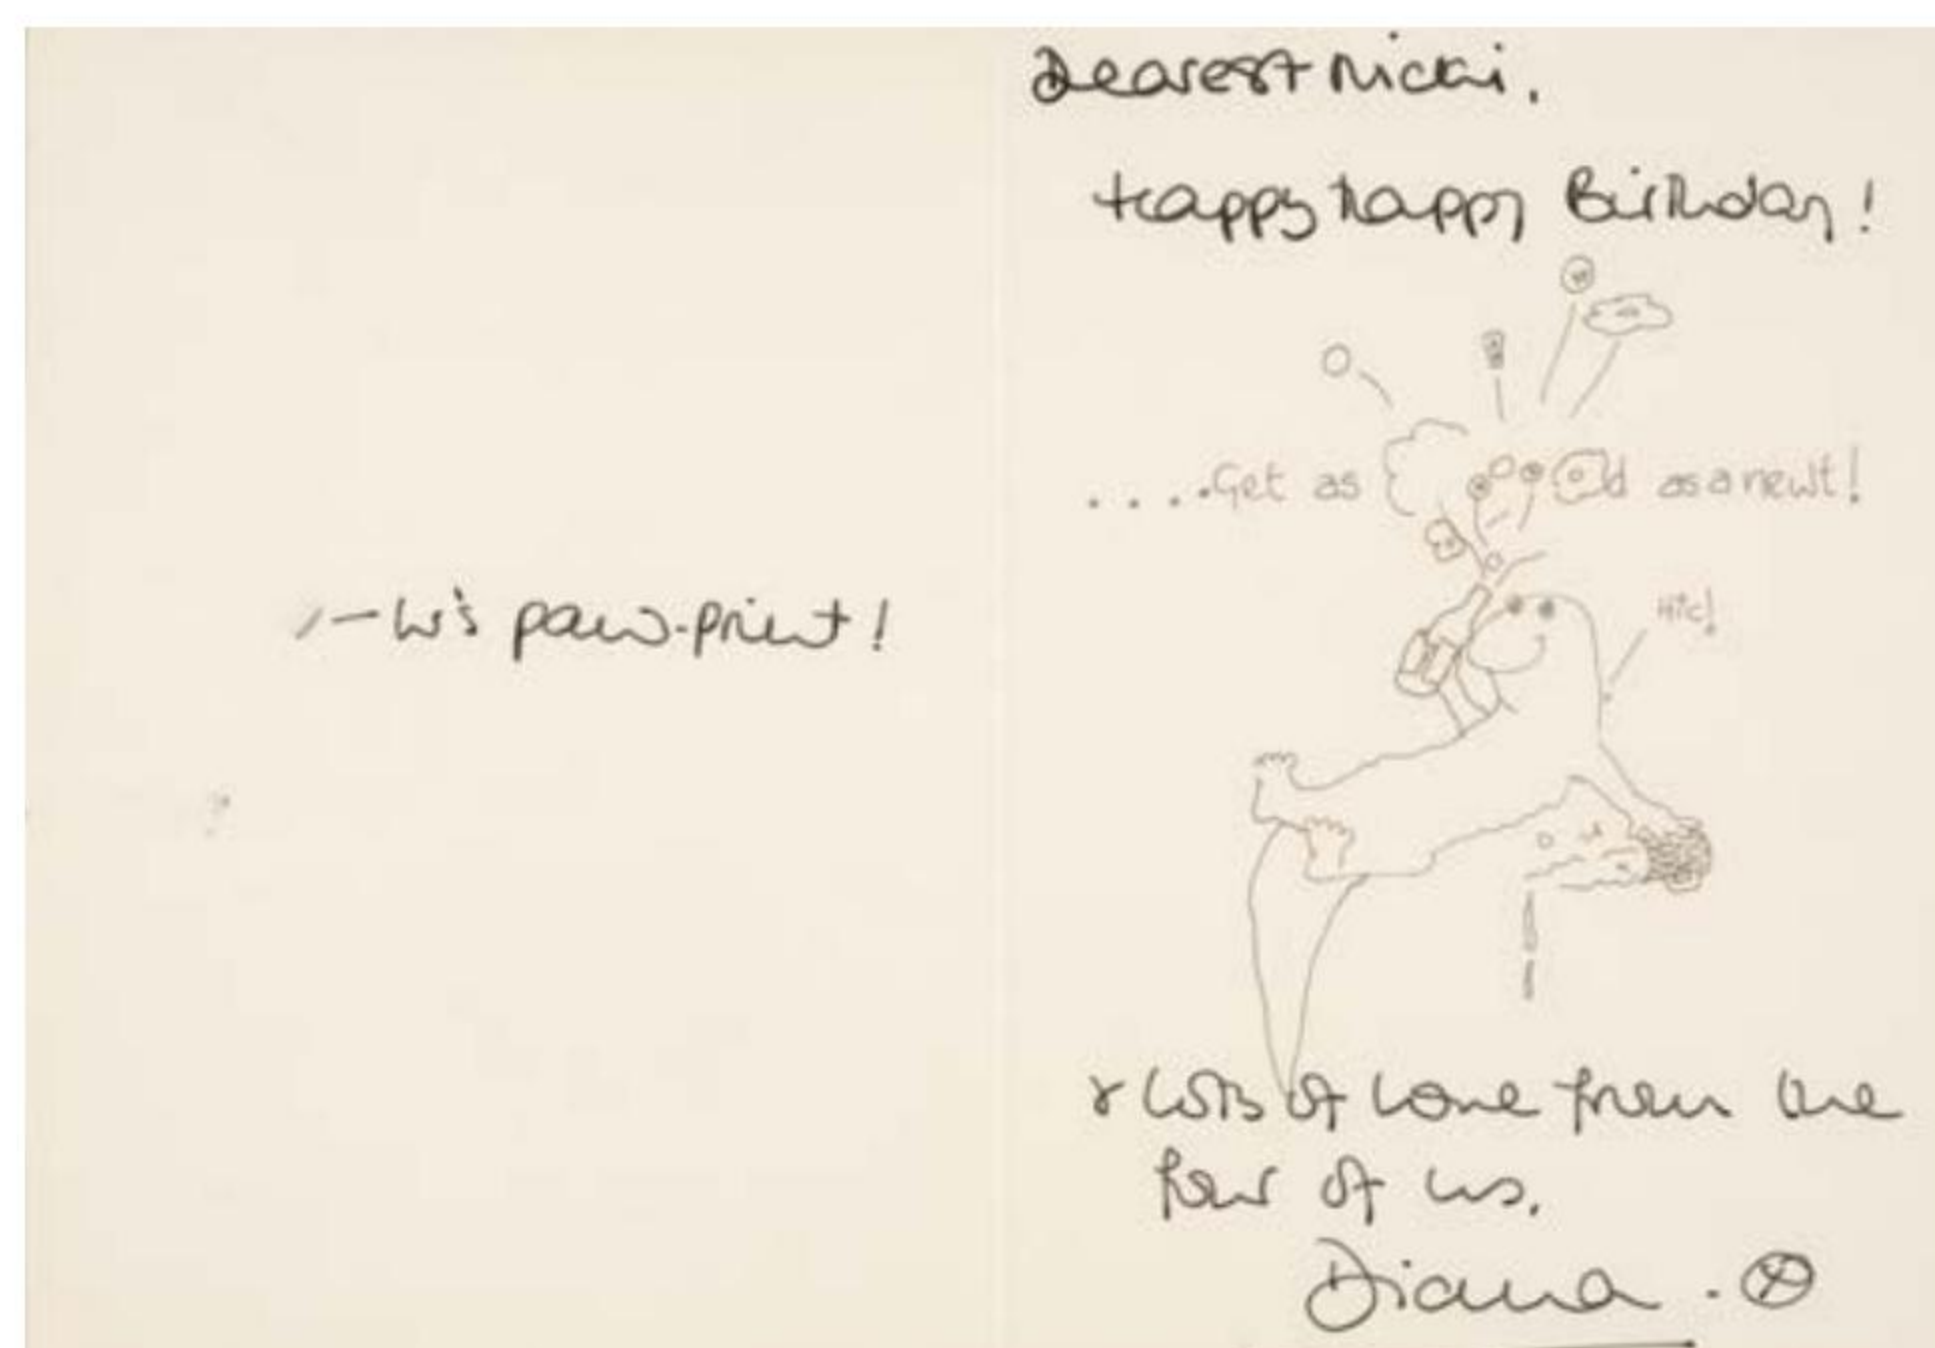 - W's paw-print!
Dearest Nicki.
Happy happy Birthday!
....Get as as a newt!
Hic!
& lots of love from the
four of us.
Diana. X